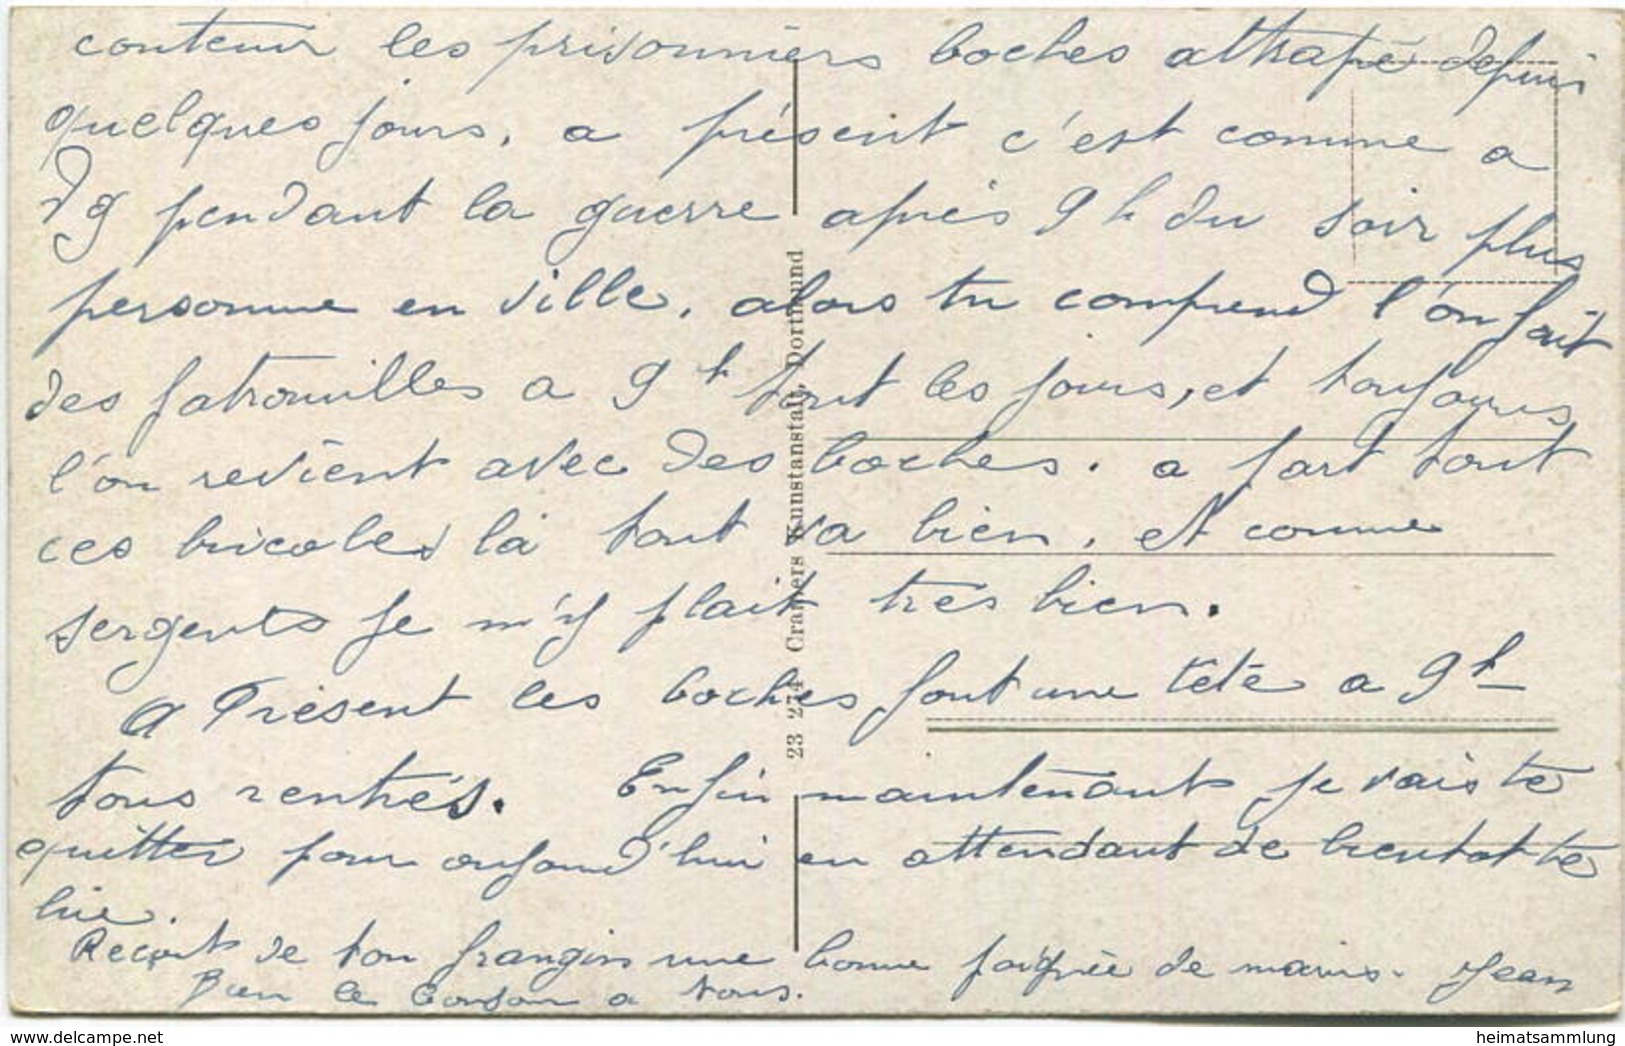 contenir les prisonniers boches attrapé depuis
quelques jours, a présent c'est comme a
pendant la guerre après 9 h du soir plus
personne en ville, alors tu comprend l'on fait
des patrouilles a 9 h tout les jours, et toujours
l'on revient avec des boches. a part tout
ces bricoles là tout va bien, et comme
sergents je m'y plait tres bien.
a Présent les boches font une tête a 9 h
tous rentrés. Enfin maintenant je vais te
quitter pour aujourd'hui en attendant de bientot te
lire.
Reçoit de ton frangin une bonne poignée de mains. Jean
Bien le Bonjour a tous.
23 274 Cramers Kunstanstalt, Dortmund
delcampe.net
heimatsammlung